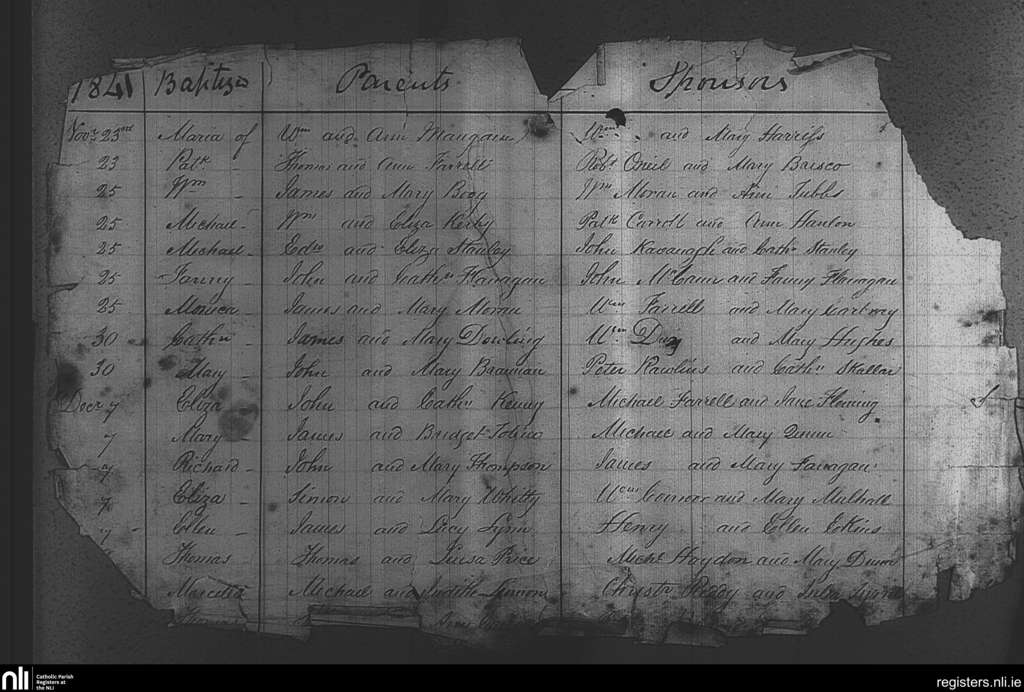 1841 Baptizd Parents Sponsors
Novr 23rd Maria of Wm and Ann Mangan Wm and Mary Harriss
23 Patk - Thomas and Ann Farrell Robt Oneil and Mary Brisco
25 Wm - James and Mary Wm Moran and Ann Tubbs
25 Michael - Wm and Eliza Kerby Patk Carroll and Ann Hanlon
25 Michael - Edwd and Eliza Stanley John Kavanagh and Cathn Stanley
25 Fanny - John and Cathn Flanagan John McCann and Fanny Flanagan
25 Monica - James and Mary Moran Wm Farrell and Mary
30 Cathn - James and Mary Dowling Wm and Mary Hughes
30 Mary - John and Mary Brannan Peter Rawlins and Cathn
Decr 7 Eliza - John and Cathn Kenny Michael Farrell and Jane Fleming
7 Mary - James and Bridget Tobin Michael and Mary Quinn
7 Richard - John and Mary Thompson James and Mary Fanagan
7 Eliza - Simon and Mary Whitty Wm Connor and Mary Mulhall
7 Ellen - James and Lucy Lynn Henry and Ellen
Thomas Thomas and Price Michl Haydon and Mary
Marcella Michael and Judith Christr Reddy and Julia
Thomas
nli Catholic Parish
Registers at
the NLI
registers.nli.ie